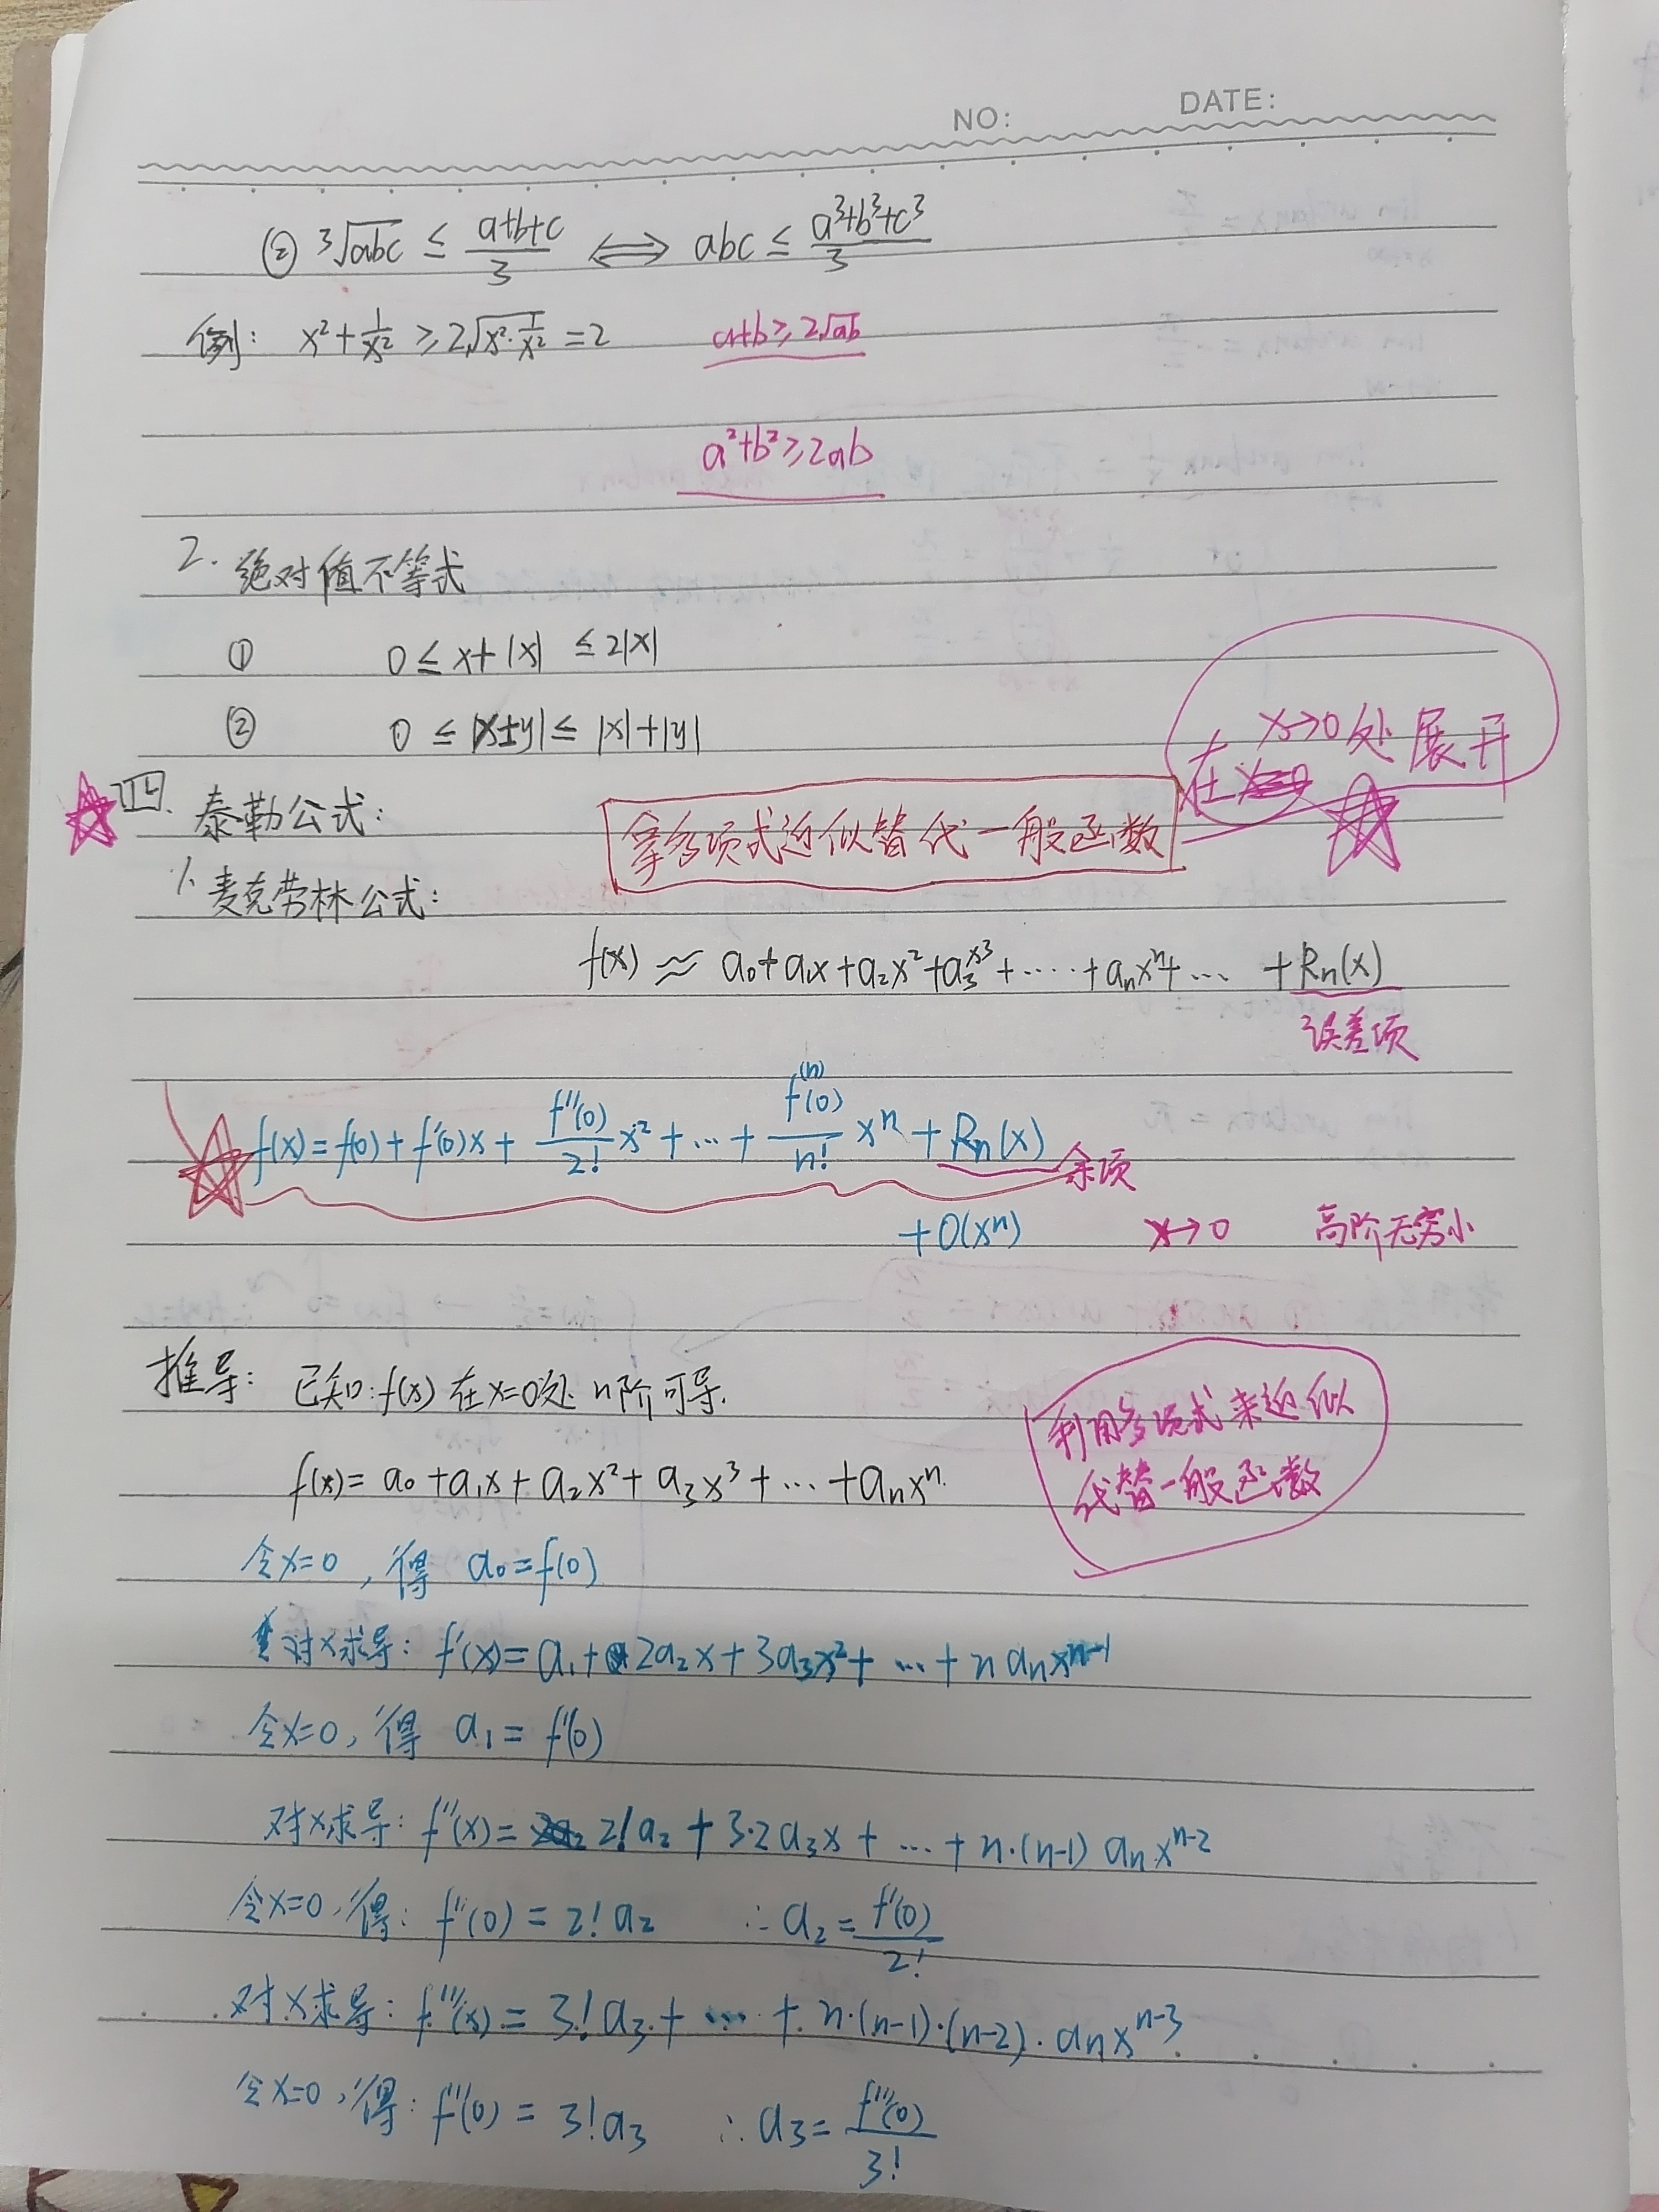 NO: DATE:
② ³√abc ≤ (a+b+c)/3 ⟺ abc ≤ (a³+b³+c³)/3
例: x²+1/x² ≥ 2√(x²·1/x²) = 2 a+b≥2√ab
a²+b²≥2ab
2. 绝对值不等式
① 0 ≤ x+|x| ≤ 2|x|
② 0 ≤ |x±y| ≤ |x|+|y|
x→0处展开
在
四. 泰勒公式: 拿多项式近似替代一般函数
1. 麦克劳林公式:
f(x) ≈ a₀+a₁x+a₂x²+a₃x³+……+aₙxⁿ+… +Rₙ(x)
误差项
f(x)=f(0)+f'(0)x+ f''(0)/2! x² + … + f⁽ⁿ⁾(0)/n! xⁿ + Rₙ(x) 余项
+O(xⁿ) x→0 高阶无穷小
推导: 已知:f(x)在x=0处n阶可导.
利用多项式来近似
代替一般函数
f(x)= a₀+a₁x+a₂x²+a₃x³+…+aₙxⁿ.
令x=0, 得 a₀=f(0)
对x求导: f'(x)= a₁+2a₂x+3a₃x²+…+n aₙxⁿ⁻¹
令x=0, 得 a₁= f'(0)
对x求导: f''(x)= 2!a₂+3·2a₃x+…+n·(n-1) aₙxⁿ⁻²
令x=0, 得: f''(0)=2!a₂ ∴a₂= f'(0)/2!
对x求导: f'''(x)= 3!a₃+…+n·(n-1)·(n-2)·aₙxⁿ⁻³
令x=0, 得: f'''(0)= 3!a₃ ∴a₃= f'''(0)/3!